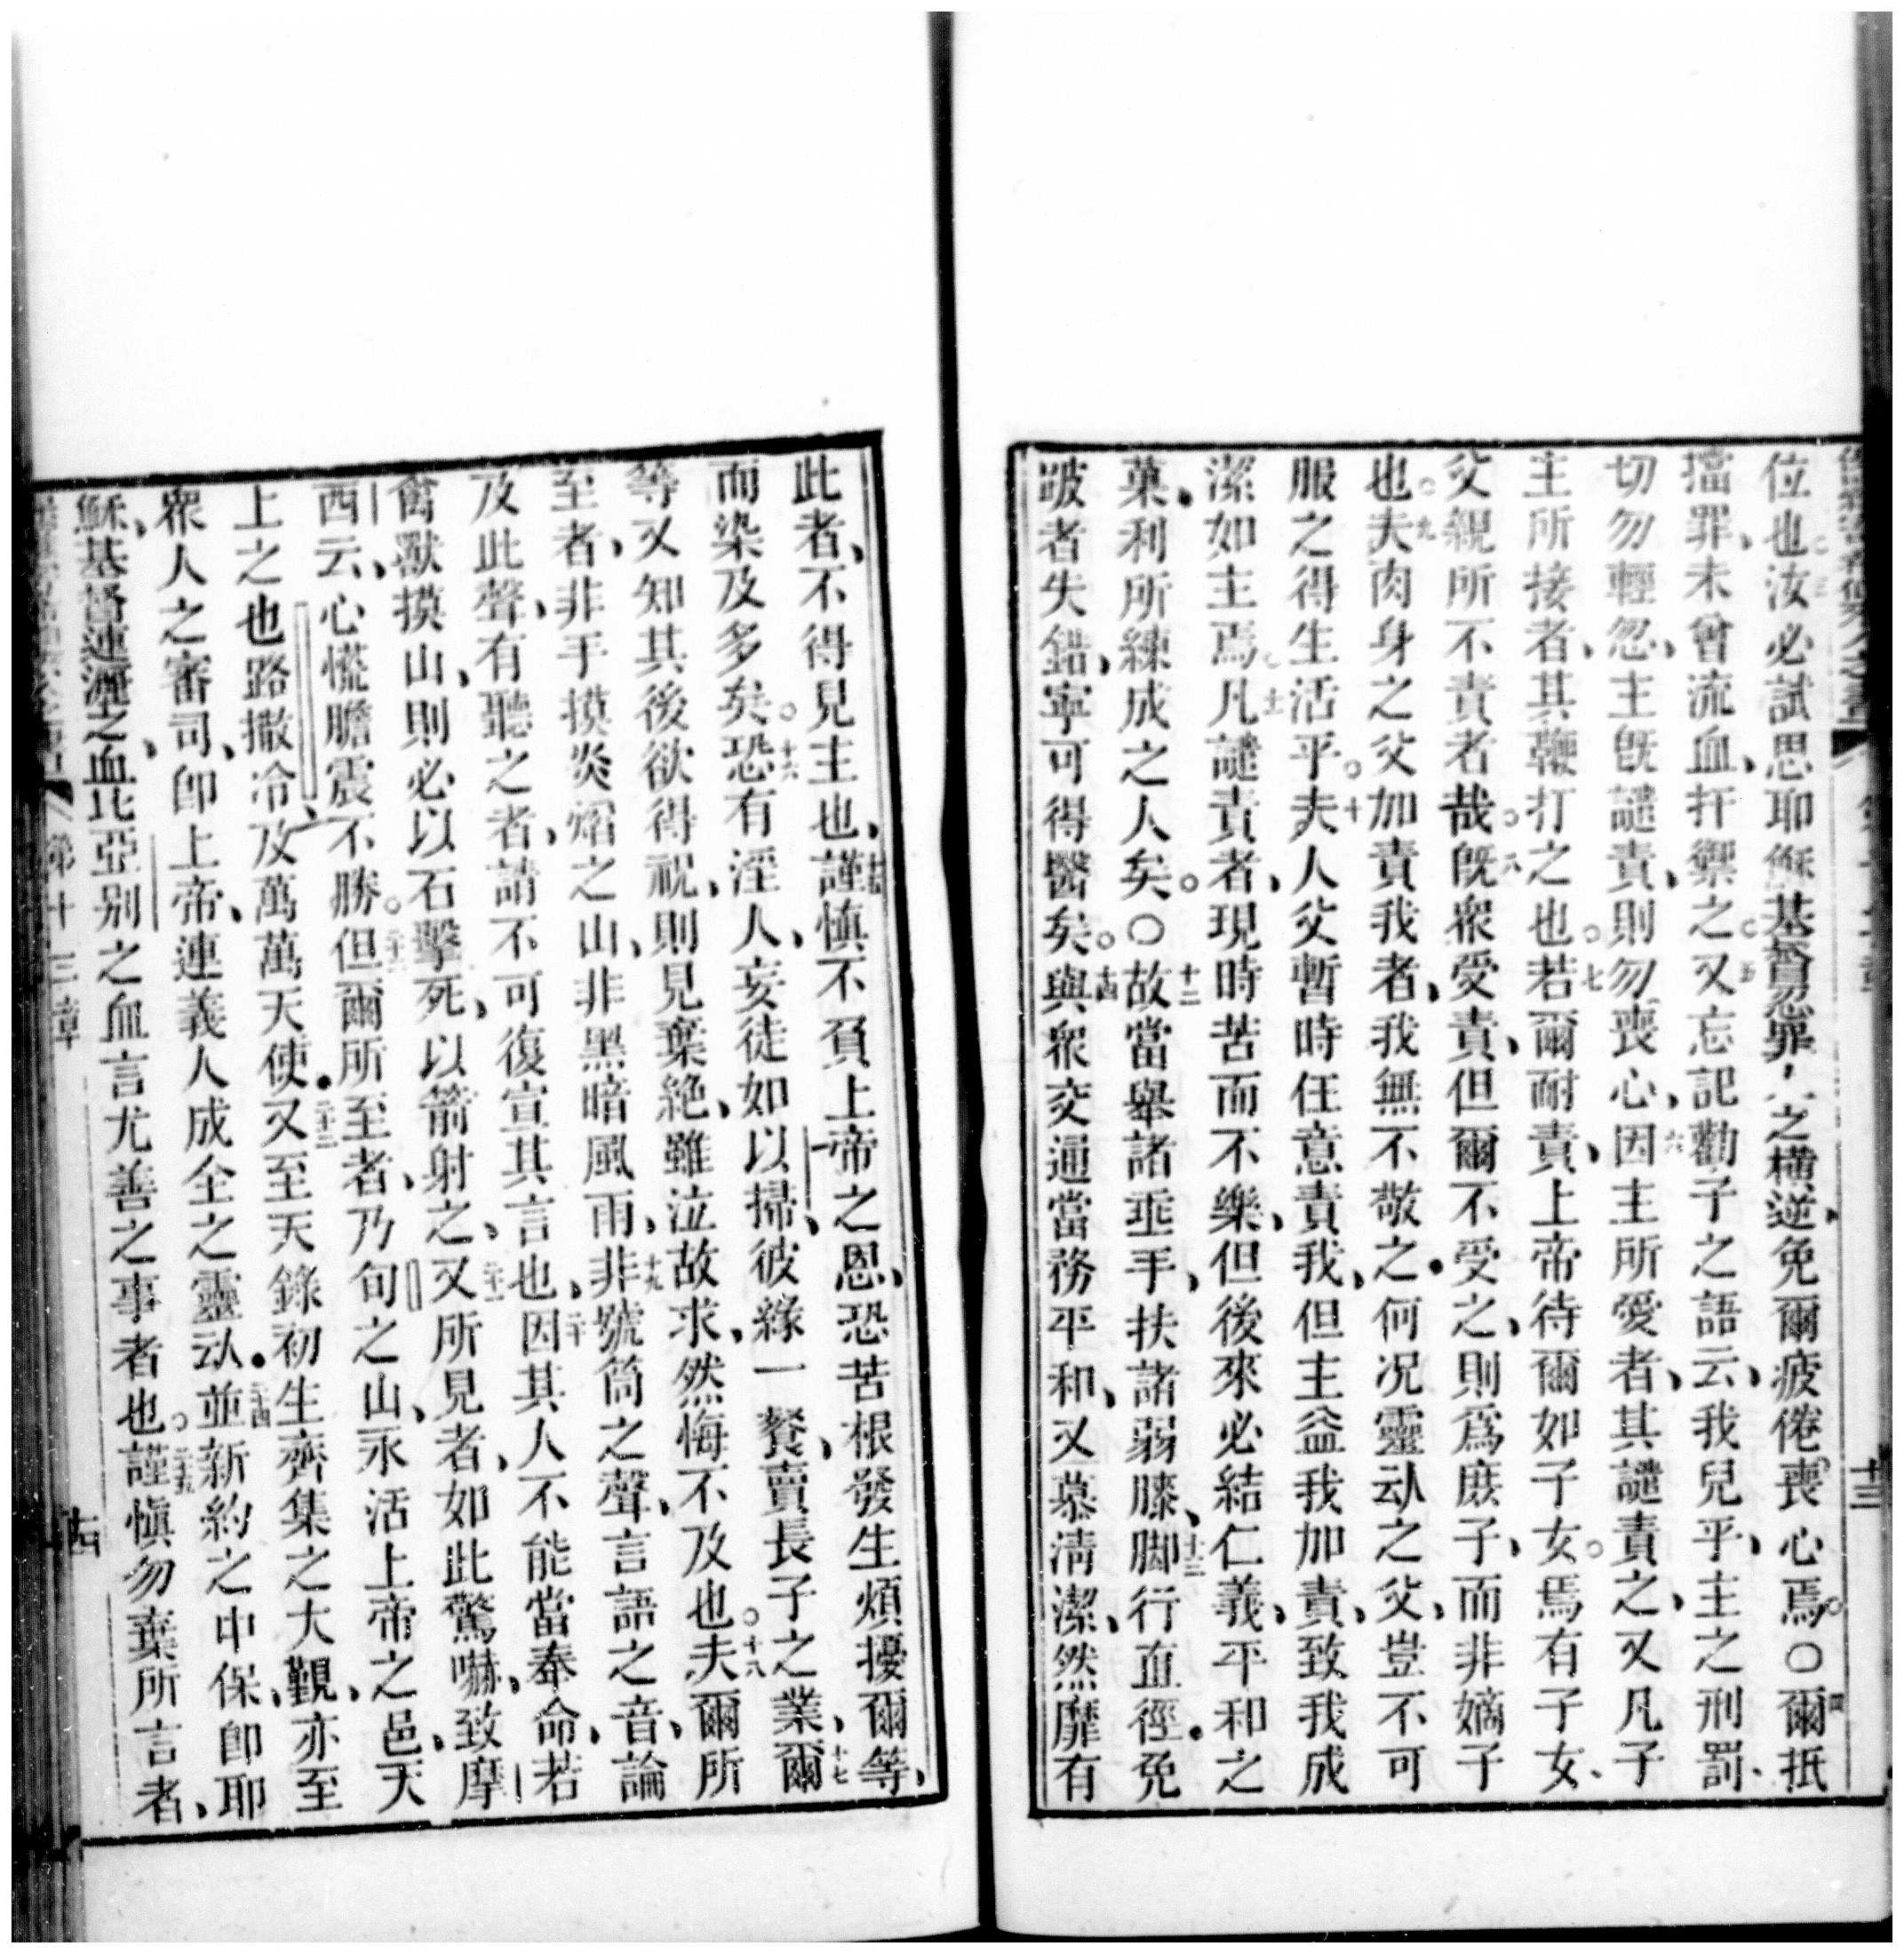 位也○三汝必試思耶穌基督忍罪人之橫逆、免爾疲倦喪心焉○四爾抵
擋罪、未曾流血、扞禦之○五又忘記勸子之語云、我兒乎、主之刑罰、
切勿輕忽、主旣譴責、則勿喪心、六因主所愛者、其譴責之、又凡子
主所接者、其鞭打之也○七若爾耐責、上帝待爾如子女○焉有子女、
父親所不責者哉○八旣衆受責、但爾不受之、則爲庶子、而非嫡子
也○九夫肉身之父加責我者、我無不敬之•何况靈㒲之父、豈不可
服之得生活乎○十夫人父暫時任意責我、但主益我加責、致我成
潔如主焉○十一凡譴責者、現時苦而不樂、但後來必結仁義、平和之
菓•利所練成之人矣○○十二故當舉諸垂手、扶諸弱膝、十三脚行直徑•免
跛者失錯、寧可得醫矣○十四與衆交通當務平和、又慕淸潔、然靡有
十三
此者、不得見主也、十五謹慎不負上帝之恩、恐苦根發生煩擾爾等、
而染及多矣○十六恐有淫人、妄徒如以掃、彼緣一餐、賣長子之業、十七爾
等又知其後欲得祝、則見棄絶、雖泣故求、然悔不及也○十八夫爾所
至者、非手摸炎熠之山、非黑暗風雨、十九非號筒之聲、言語之音、論
及此聲、有聽之者、請不可復宣其言也、二十因其人不能當奉命、若
禽獸摸山、則必以石擊死、以箭射之、二十一又所見者、如此驚嚇、致摩
西云、心慌膽震不勝○二十二但爾所至者、乃旬之山、永活上帝之邑、天
上之也路撒冷及萬萬天使•二十三又至天錄初生齊集之大觀、亦至
衆人之審司、卽上帝、連義人成全之靈㒲•二十四並新約之中保、卽耶
穌、基督連灑之血、比亞别之血言尤善之事者也○二十五謹慎勿棄所言者、
第十三章
十四